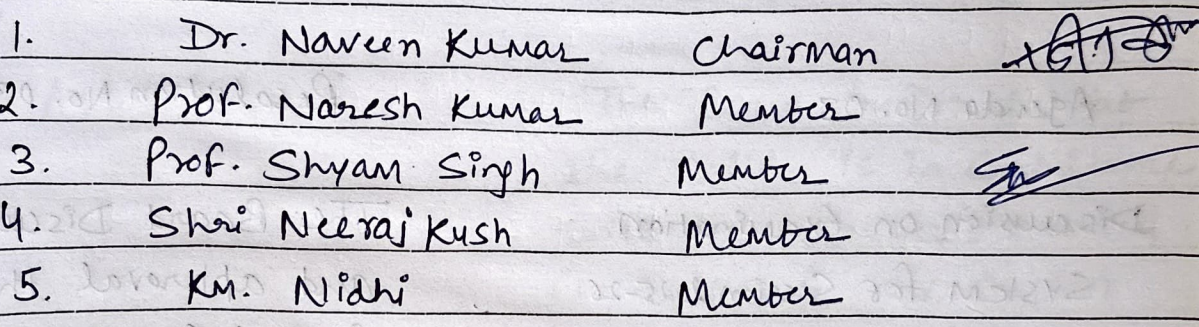 1. Dr. Naveen Kumar Chairman
2. Prof. Naresh Kumar Member
3. Prof. Shyam Singh Member
4. Shri Neeraj Kush Member
5. Km. Nidhi Member